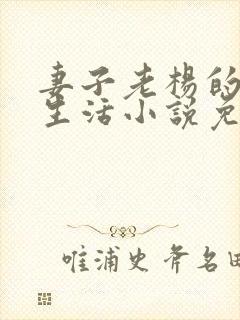 妻子老杨的
生活小説免
唯浦史斧名田